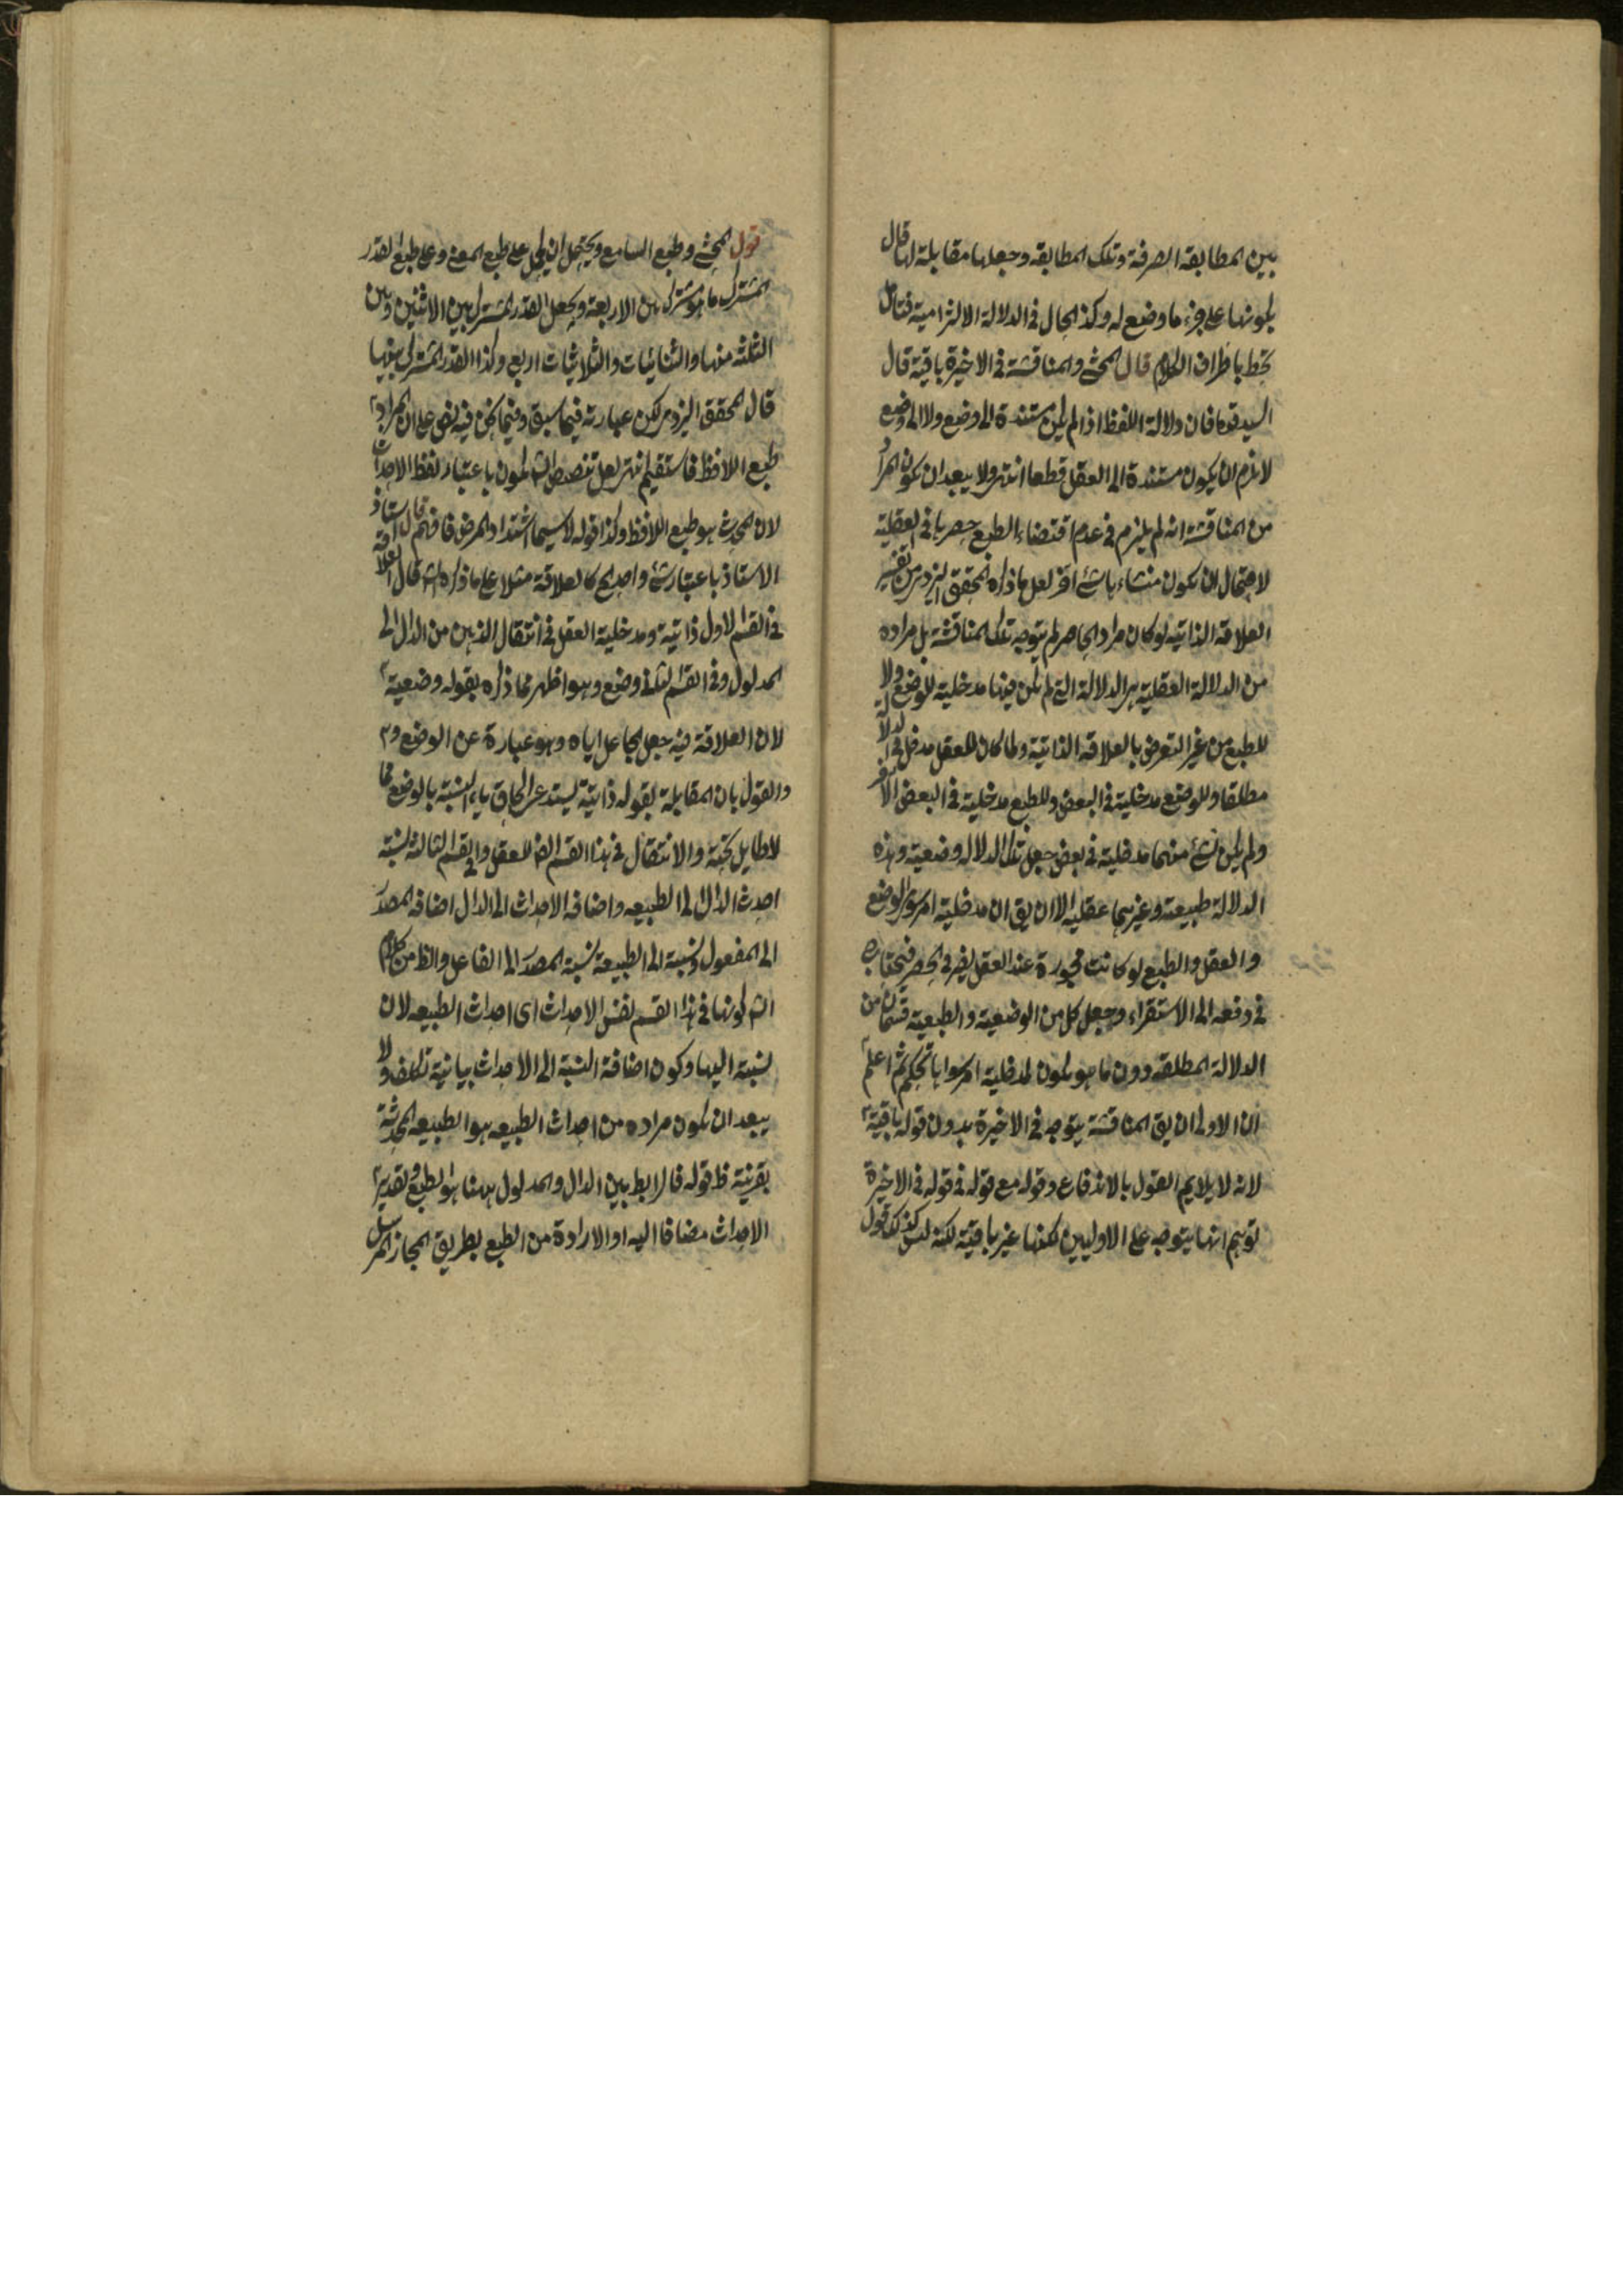 بين المطابقه الصرفة وتلك المطابقه وجعلها مقابلة لها قال
بكونها على جزء ما وضع له وكذ الحال فى الدلالة الالتزامية فتأمل
تحط باطراف الكلام قال المحشى والمناقشة فى الاخيرة باقية قال
السيد قده فان دلالة اللفظ اذا لم يكن مستندة الى وضع ولا الى وضع
لا نزم ان يكون مستندة الى العقل قطعا انتهى ولا يبعد ان يكون المراد
من المناقشة انه لم يلزم فى عدم اقتضاء الطبع حصرها فى العقلية
لاحتمال ان يكون منشاءها شئ اخر لعل ما ذكره المحقق اليزدى من تفسير
العلاقة الذاتيه لو كان مراد الحاصر لم يتوجه تلك المناقشة بل مراده
من الدلالة العقلية هى الدلالة التى لم يكن فيها مدخلية للوضع ولا
للطبع من غير التعرض بالعلاقة الذاتية ولما كان للعقل مدخل فى الدلالة
مطلقا وللوضع مدخلية فى البعض وللطبع مدخلية فى البعض الآخر
ولم يكن لشئ منهما مدخلية فى بعض جعل تلك الدلاله وضعية وهذه
الدلالة طبيعية وغيرهما عقليه الا ان يق ان مدخلية امر سوى الوضع
والعقل والطبع لو كانت مجوزة عند العقل يضر فى الحصر
فى دفعه الى الاستقراء وجعل كل من الوضعية والطبعية قسمان من
الدلالة المطلقه دون ما هو يكون لمدخلية امر سواها تحكم ثم اعلم
ان الاولى ان يق المناقشة يتوجه فى الاخيرة بدون قوله باقية
لانه لا يلايم القول بالاندفاع وقوله مع قوله فى قوله فى الاخيرة
توهم انها يتوجه على الاوليين لكنها غير باقية لكنه ليس كذلك قول
قول المحشى وطبع السامع ويحتمل ان يحمل على طبع المعنى وعلى طبع القدر
المشترك ما هو مشترك بين الاربعة ويجعل القدر المشترك بين الاثنين وبين
الثلثه منها والثنائيات والثلاثيات اربع وكذا القدر المشترك بينها
قال المحقق اليزدى لكن عبارته فيما سبق وفيما نحن فيه نص على ان المراد
طبع اللافظ فاستقيم انتهى لعل تنصيص الش يكون باعتبار لفظ الاحداث
لان المحدث هو طبع اللافظ وكذا قوله لا سيما اشتداد المرض فافهم قال استاذ
الاستاذ باعتبار شئ واحد كالعلاقة مثلا على ما ذكره الش قال العلاقة
فى القسم الاول ذاتية ومدخلية العقل فى انتقال الذهن من الدال الى
المدلول وفى القسم الثانى وضع وهو اظهر مما ذكره بقوله وضعية
لان العلاقة فيه جعل الجاعل اياه وهو عبارة عن الوضع
والقول بان المقابلة بقوله ذاتية يستدعى الحاق ياء النسبة بالوضع مما
لا طايل تحته والانتقال فى هذا القسم ايضا للعقل وفى القسم الثالث نسبة
احداث الدال الى الطبيعه واضافه الاحداث الى الدال اضافه المصدر
الى المفعول ونسبة الى الطبيعة نسبة المصدر الى الفاعل والظ من كلام
الش كونها فى هذا القسم نفس الاحداث اى احداث الطبيعه لان
نسبة اليها وكون اضافة النسبة الى الاحداث بيانية تكلف ولا
يبعد ان يكون مراده من احداث الطبيعه هو الطبيعه المحدثة
بقرينة ظ قوله فالرابط بين الدال والمدلول ههنا هو الطبع بتقدير
الاحداث مضافا اليه او الارادة من الطبع بطريق المجاز المرسل